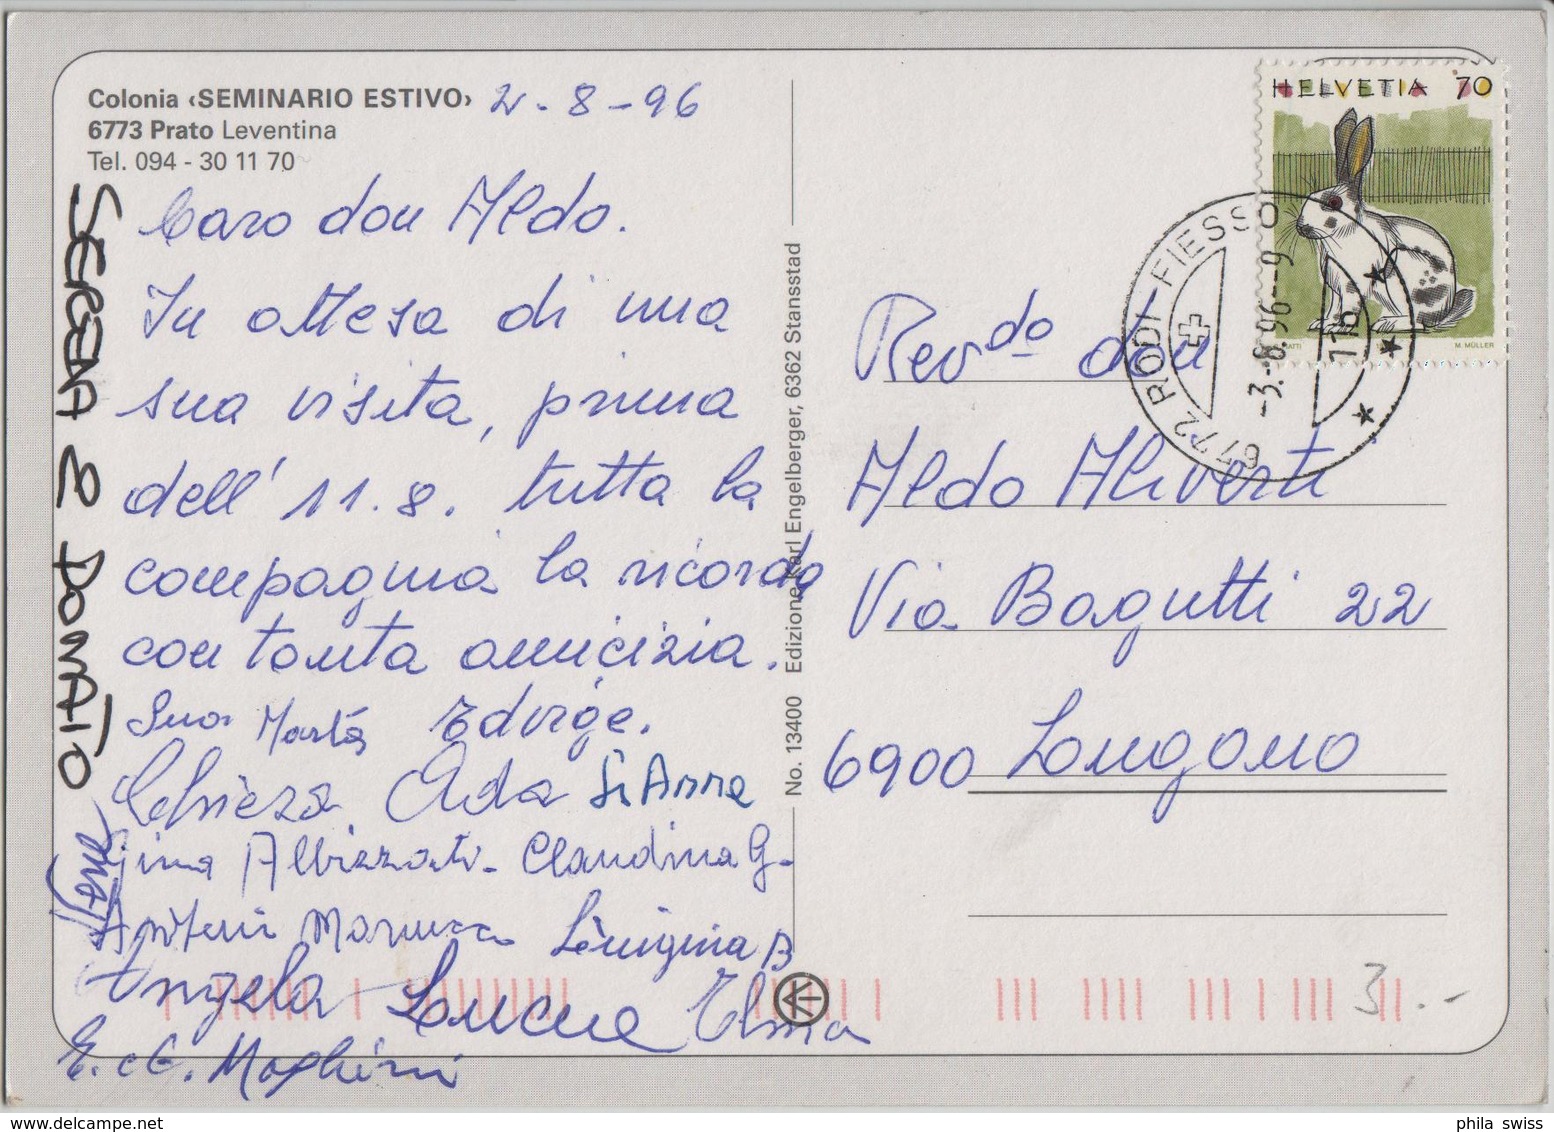 Colonia ‹SEMINARIO ESTIVO› 2-8-96
6773 Prato Leventina
Tel. 094 - 30 11 70
Caro don Aldo.
In attesa di una
sua visita, prima
dell'11.8. tutta la
compagnia la ricorda
con tanta amicizia.
Suor Marta Edvige.
Chiesa Ada Sr Anna
Albizzati - Claudina G-
Marucca Luigina B
Angela Lucia Elma
E. e G. Maghini
SERENA E DONATO
No. 13400 Edizione Karl Engelberger, 6362 Stansstad
HELVETIA 70
M. MÜLLER
6772 RODI-FIESSO
-3.-8.96--9
Revdo don
Aldo Aliverti
Via Bagutti 22
6900 Lugano
3.-
phila swiss